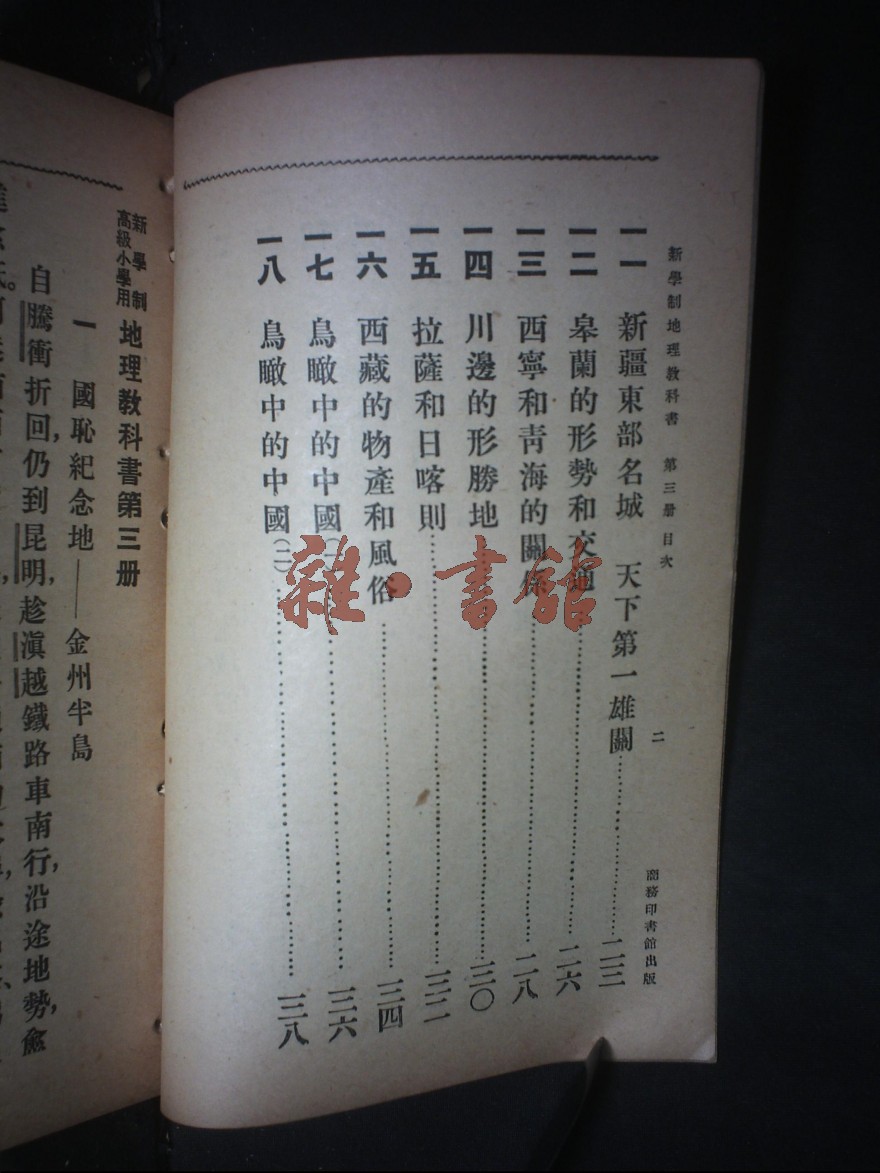 新學制地理教科書 第三册 目次
二
商務印書館出版
一一 新疆東部名城 天下第一雄關……二三
一二 皋蘭的形勢和交通……二六
一三 西寧和青海的關係……二八
一四 川邊的形勝地……三〇
一五 拉薩和日喀則……三二
一六 西藏的物產和風俗……三四
一七 鳥瞰中的中國(一)……三六
一八 鳥瞰中的中國(二)……三八
新學制
高級小學用
地理教科書第三册
一 國恥紀念地——金州半島
自騰衝折回,仍到昆明,趁滇越鐵路車南行,沿途地勢,愈
雜·書館